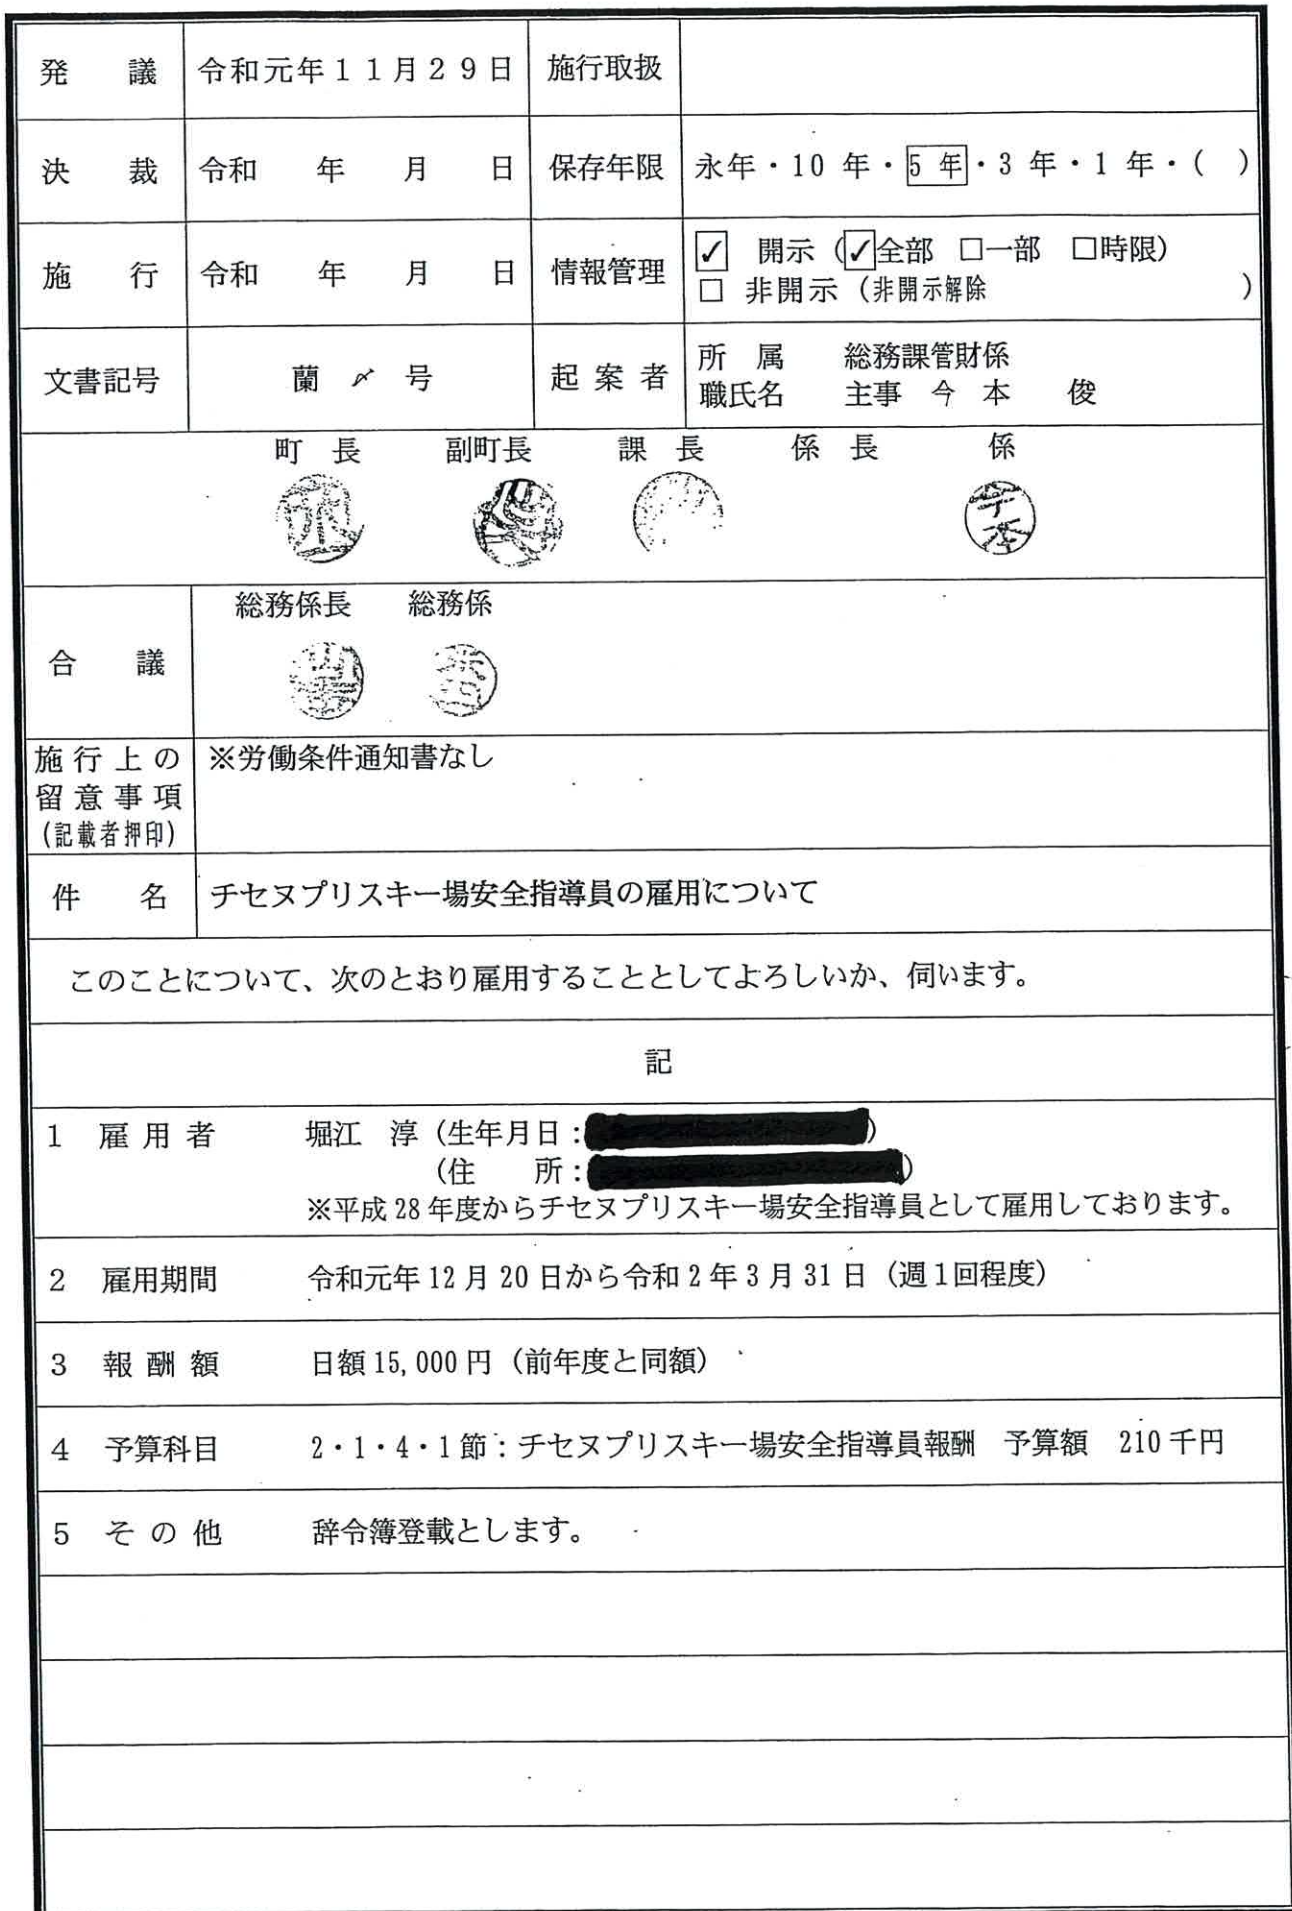 発　議　令和元年１１月２９日　施行取扱
決　裁　令和　年　月　日　保存年限　永年・10 年・5 年・3 年・1 年・(　)
施　行　令和　年　月　日　情報管理　☑ 開示（☑全部 □一部 □時限）
□ 非開示（非開示解除　　）
文書記号　蘭　〆　号　起案者　所　属　総務課管財係
職氏名　主事　今　本　俊
町　長　副町長　課　長　係　長　係
今本
総務係長　総務係
合　議
施行上の　※労働条件通知書なし
留意事項
(記載者押印)
件　名　チセヌプリスキー場安全指導員の雇用について
このことについて、次のとおり雇用することとしてよろしいか、伺います。
記
1　雇用者　堀江　淳（生年月日：　）
（住　所：　）
※平成 28 年度からチセヌプリスキー場安全指導員として雇用しております。
2　雇用期間　令和元年 12 月 20 日から令和 2 年 3 月 31 日（週１回程度）
3　報酬額　日額 15,000 円（前年度と同額）
4　予算科目　2・1・4・1 節：チセヌプリスキー場安全指導員報酬　予算額　210 千円
5　その他　辞令簿登載とします。